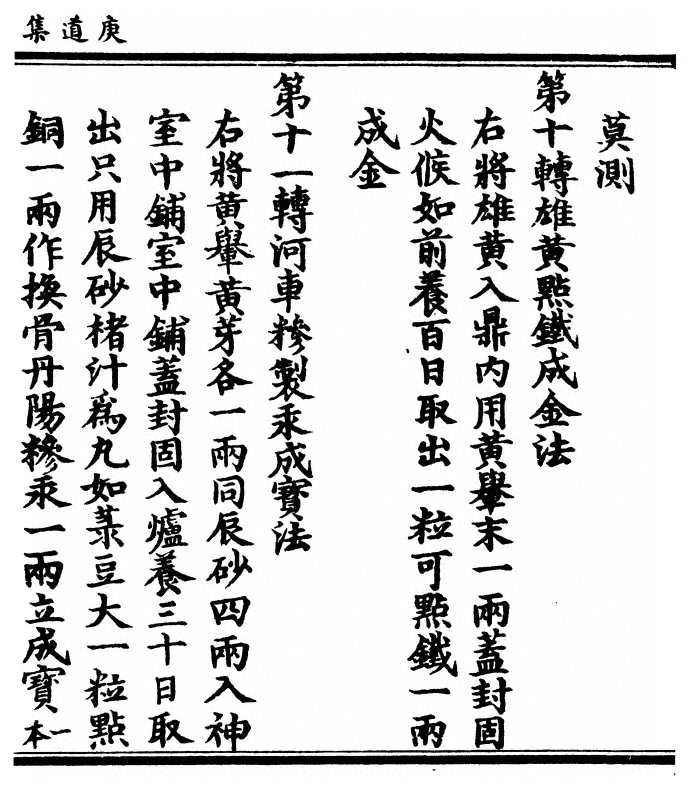 庚道集
莫測
第十轉雄黃點鐵成金法
右將雄黃入鼎內用黃轝末一兩蓋封固
火候如前養百日取出一粒可點鐵一兩
成金
第十一轉河車糝製汞成寶法
右將黃轝黃芽各一兩同辰砂四兩入神
室中鋪室中鋪蓋封固入爐養三十日取
出只用辰砂楮汁爲丸如菉豆大一粒點
銅一兩作換骨丹陽糝汞一兩立成寶一本